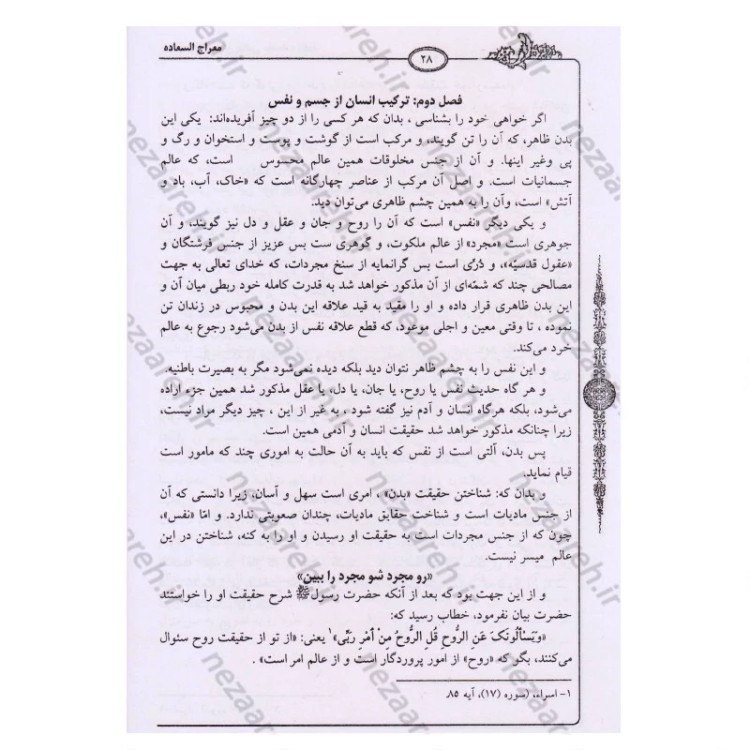 معراج السعاده
۲۸
فصل دوم: ترکیب انسان از جسم و نفس
اگر خواهی خود را بشناسی ، بدان که هر کسی را از دو چیز آفریده‌اند: یکی این
بدن ظاهر، که آن را تن گویند، و مرکب است از گوشت و پوست و استخوان و رگ و
پی وغیر اینها. و آن از جنس مخلوقات همین عالم محسوس است، که عالم
جسمانیات است. و اصل آن مرکب از عناصر چهارگانه است که «خاک، آب، باد و
آتش» است، وآن را به همین چشم ظاهری می‌توان دید.
و یکی دیگر «نفس» است که آن را روح و جان و عقل و دل نیز گویند، و آن
جوهری است «مجرد» از عالم ملکوت، و گوهری ست بس عزیز از جنس فرشتگان و
«عقول قدسیّه»، و دُرّی است بس گرانمایه از سنخ مجردات، که خدای تعالی به جهت
مصالحی چند که شمّه‌ای از آن مذکور خواهد شد به قدرت کامله خود ربطی میان آن و
این بدن ظاهری قرار داده و او را مقید به قید علاقه این بدن و محبوس در زندان تن
نموده ، تا وقتی معین و اجلی موعود، که قطع علاقه نفس از بدن می‌شود رجوع به عالم
خرد می‌کند.
و این نفس را به چشم ظاهر نتوان دید بلکه دیده نمی‌شود مگر به بصیرت باطنیه.
و هر گاه حدیث نفس یا روح، یا جان، یا دل، یا عقل مذکور شد همین جزء اراده
می‌شود، بلکه هرگاه انسان و آدم نیز گفته شود ، به غیر از این ، چیز دیگر مراد نیست،
زیرا چنانکه مذکور خواهد شد حقیقت انسان و آدمی همین است.
پس بدن، آلتی است از نفس که باید به آن حالت به اموری چند که مامور است
قیام نماید.
و بدان که: شناختن حقیقت «بدن» ، امری است سهل و آسان، زیرا دانستی که آن
از جنس مادیات است و شناخت حقایق مادیات، چندان صعوبتی ندارد. و امّا «نفس»،
چون که از جنس مجردات است به حقیقت او رسیدن و او را به کنه، شناختن در این
عالم میسر نیست.
«رو مجرد شو مجرد را ببین»
و از این جهت بود که بعد از آنکه حضرت رسولﷺ شرح حقیقت او را خواستند
حضرت بیان نفرمود، خطاب رسید که:
«وَیَسْأَلُونَکَ عَنِ الرُّوحِ قُلِ الرُّوحُ مِنْ أَمْرِ رَبِّی»۱ یعنی: «از تو از حقیقت روح سئوال
می‌کنند، بگو که «روح» از امور پروردگار است و از عالم امر است» .
۱- اسراء، (سوره (۱۷)، آیه ۸۵.
nezaareh.ir